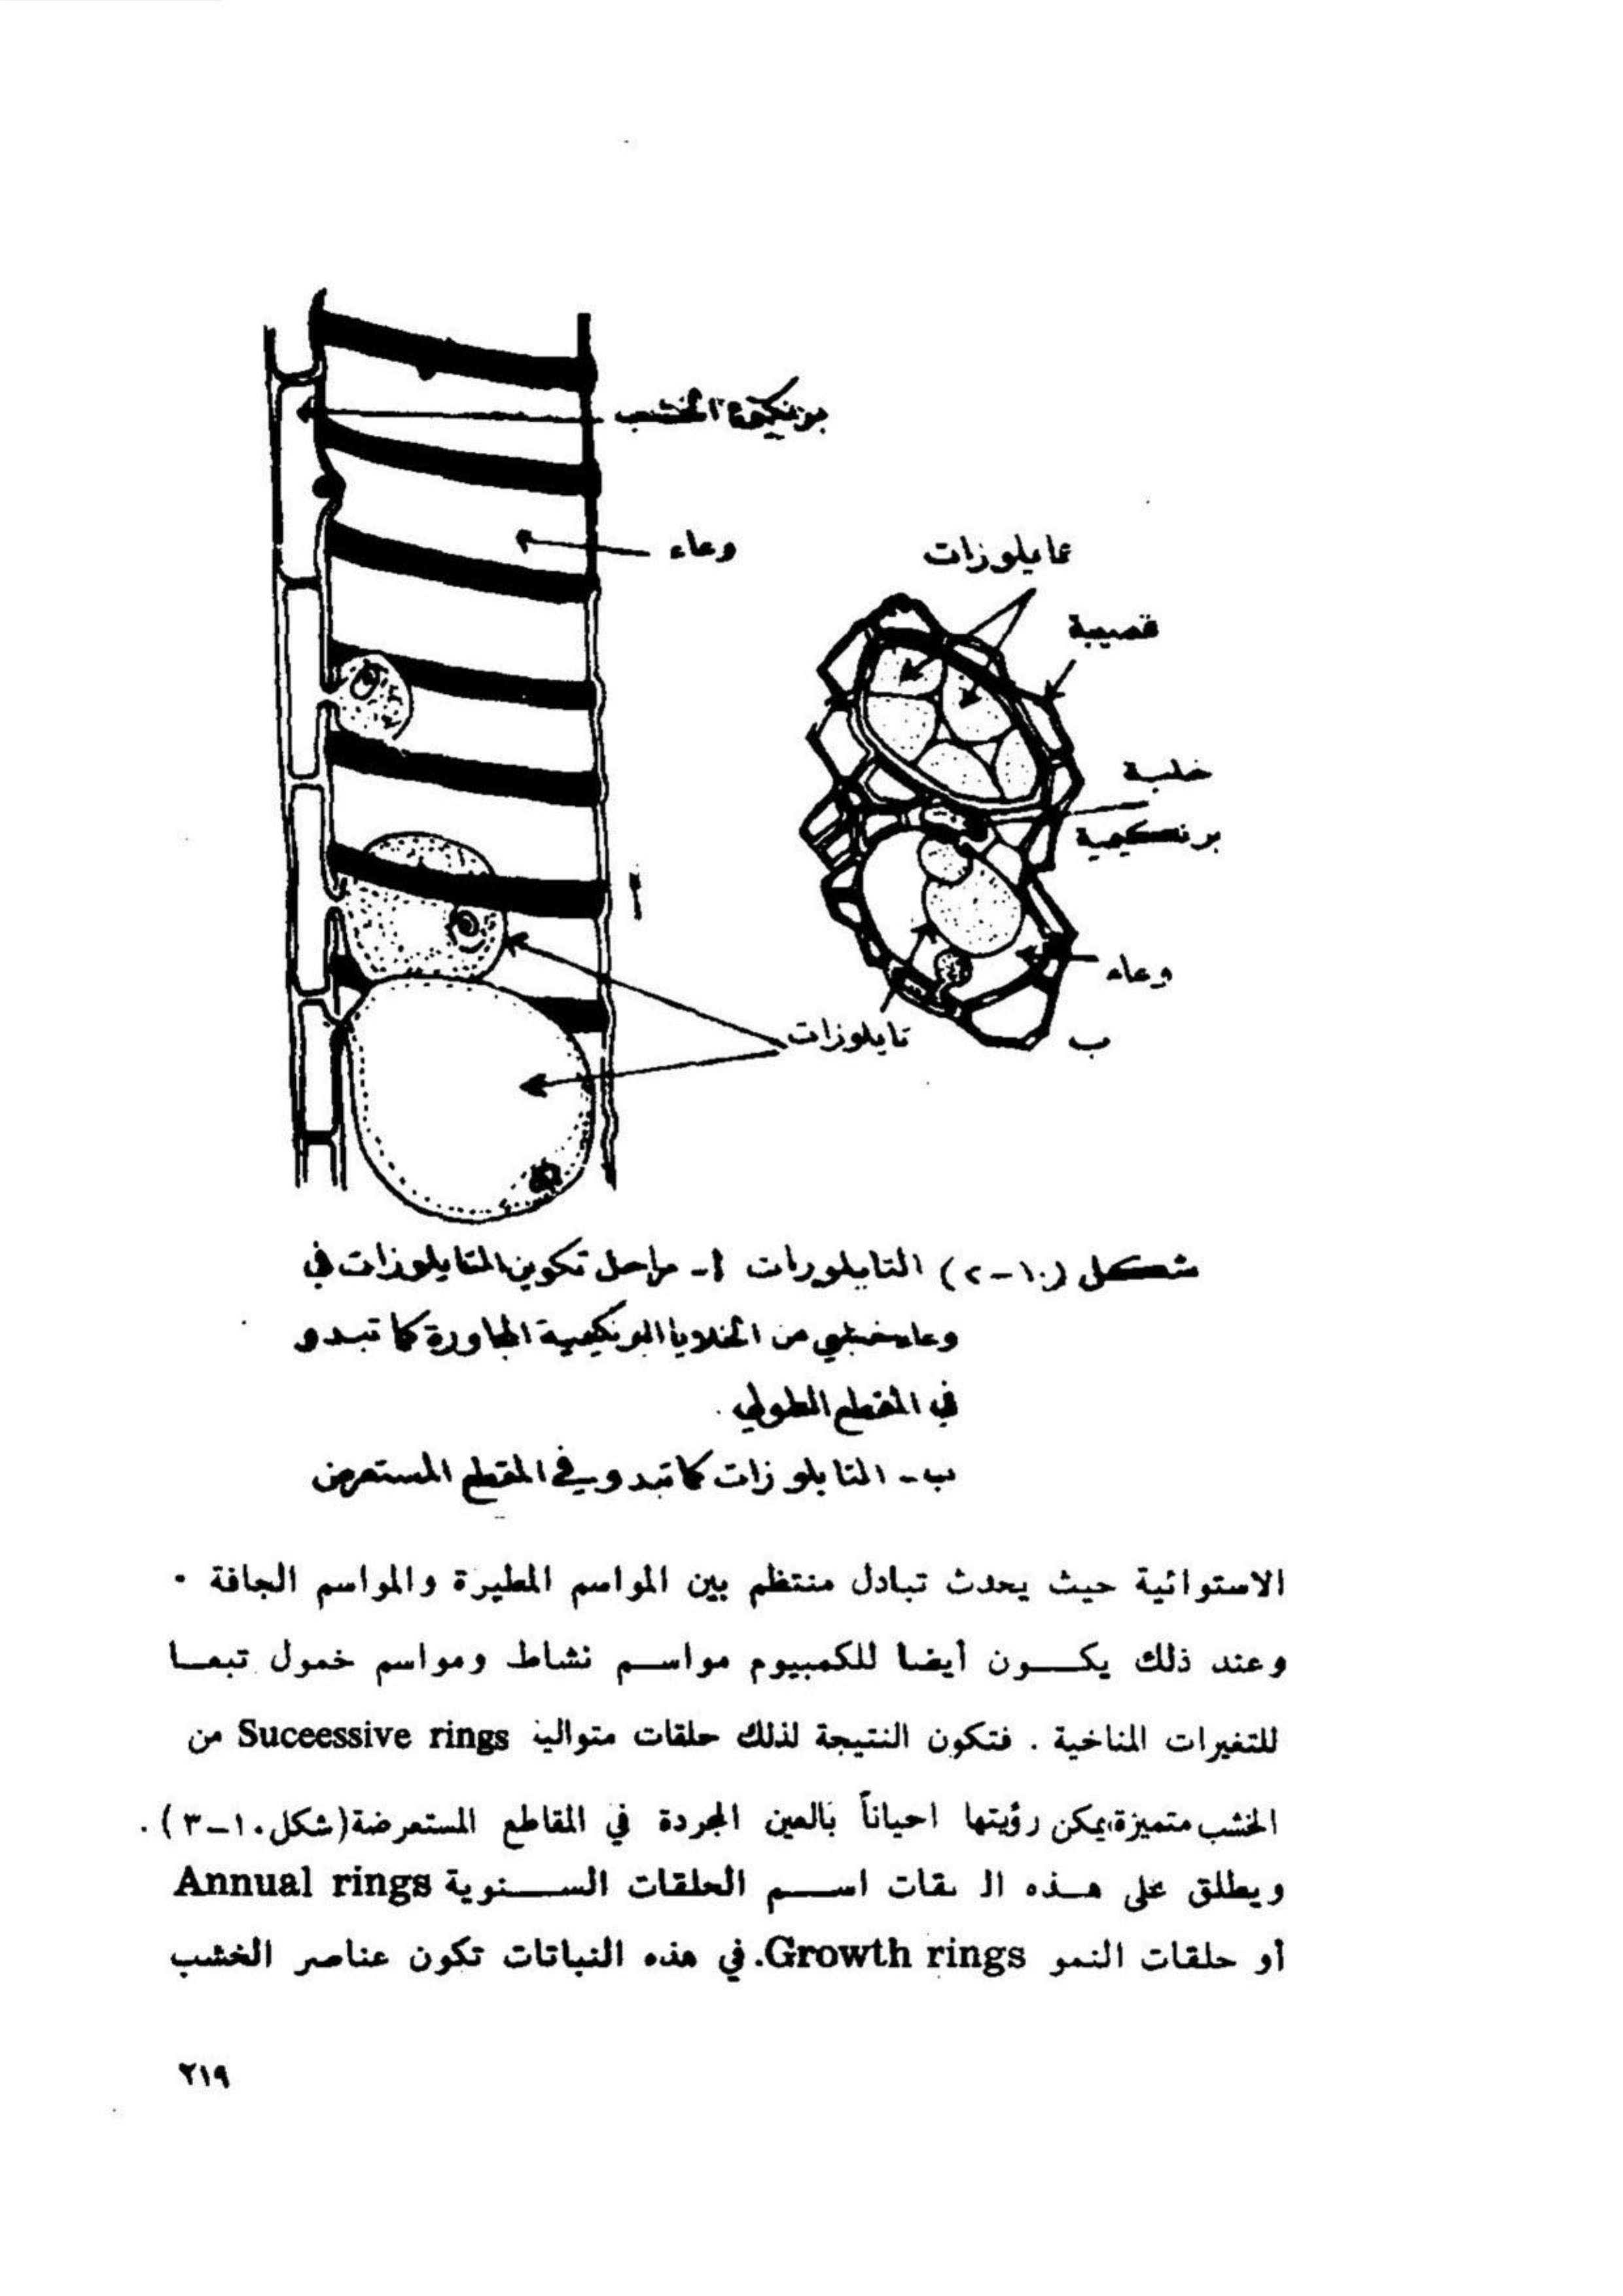 برنكيمة الخشب
وعاء
تايلوزات
قصيبة
خلية
برنكيمية
وعاء
أ
تايلوزات
ب
شكل (١٠-٢) التايلوزات أ- مراحل تكوين التايلوزات في
وعاء خشبي من الخلايا البرنكيمية المجاورة كما تبدو
في المقطع الطولي .
ب- التايلوزات كما تبدو في المقطع المستعرض
الاستوائية حيث يحدث تبادل منتظم بين المواسم المطيرة والمواسم الجافة .
وعند ذلك يكون أيضا للكمبيوم مواسم نشاط ومواسم خمول تبعا
للتغيرات المناخية . فتكون النتيجة لذلك حلقات متوالية Suceessive rings من
الخشب متميزة،يمكن رؤيتها احياناً بالعين المجردة في المقاطع المستعرضة(شكل١٠-٣) .
ويطلق على هذه ال ـقات اسم الحلقات السنوية Annual rings
أو حلقات النمو Growth rings. في هذه النباتات تكون عناصر الخشب
٢١٩